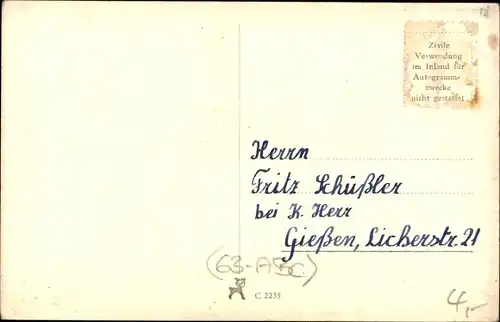 18
Zivile
Verwendung
im Inland für
Autogramm-
zwecke
nicht gestattet
Herrn
Fritz Schüßler
bei K. Herr
Gießen, Licherstr. 21
(63-ABC)
C 2255
4,-